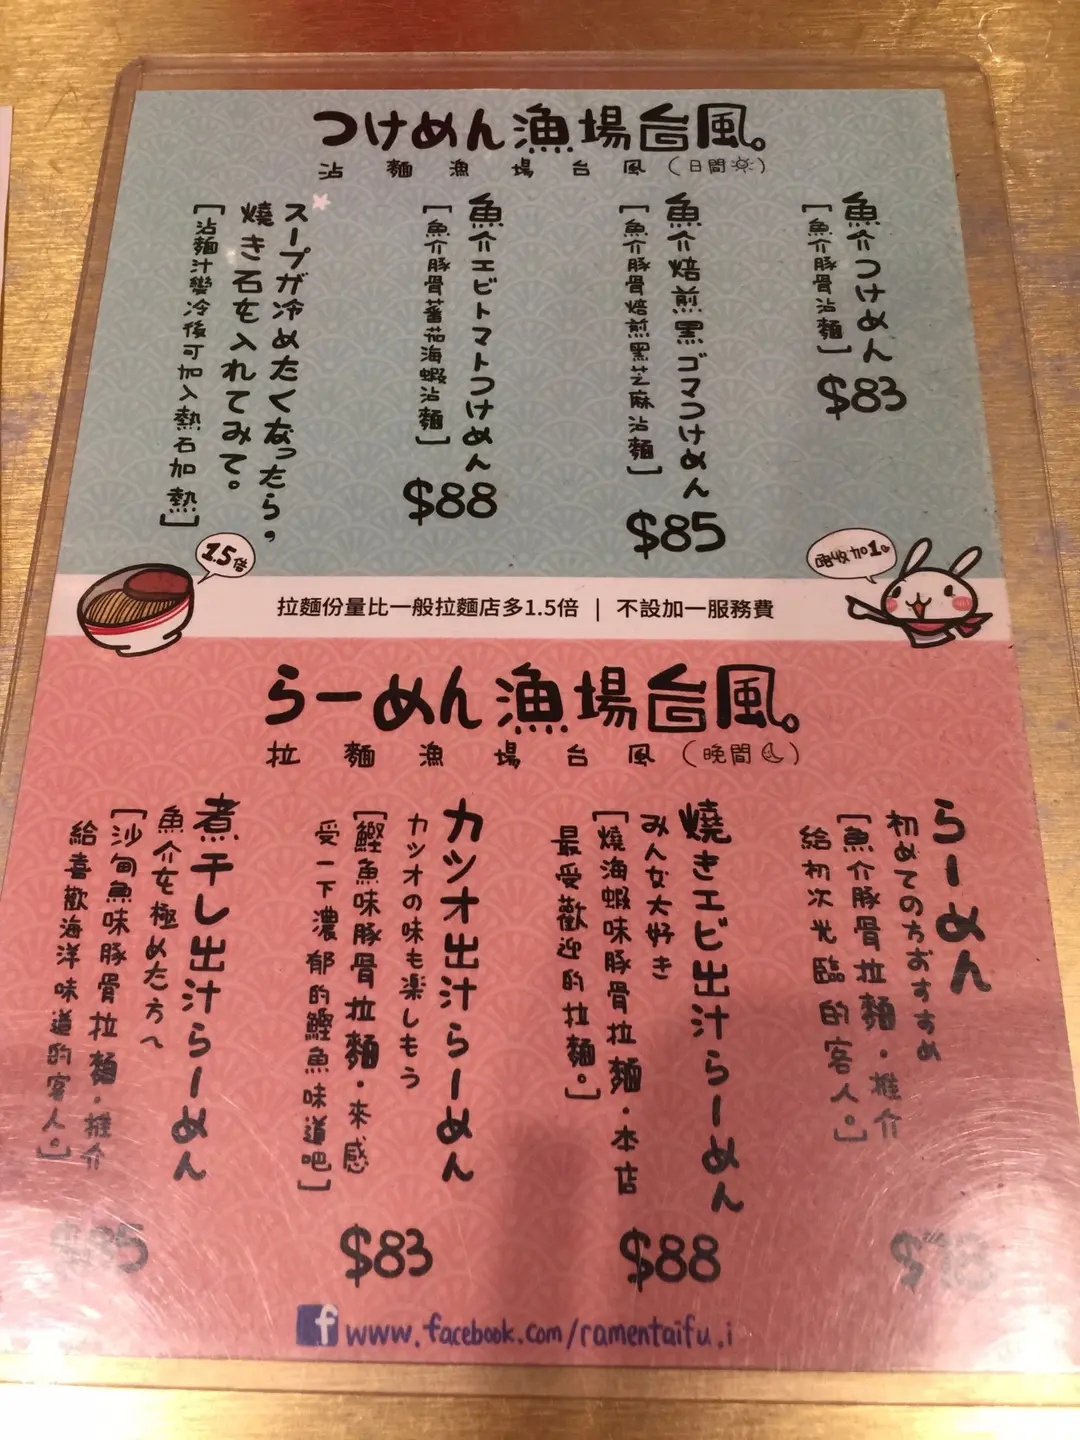 つけめん漁場台風。
沾麵漁場台風(日間)
魚介つけめん
[魚介豚骨沾麵]
$83
魚介焙煎黒ゴマつけめん
[魚介豚骨焙煎黑芝麻沾麵]
$85
魚介エビトマトつけめん
[魚介豚骨蕃茄海蝦沾麵]
$88
スープが冷めたくなったら,
燒き石を入れてみて。
[沾麵汁變冷後可加入熱石加熱]
1.5倍
拉麵份量比一般拉麵店多1.5倍 | 不設加一服務費
唔收加1。
らーめん漁場台風。
拉麵漁場台風(晚間)
らーめん
初めての方おすすめ
[魚介豚骨拉麵·推介
給初次光臨的客人。]
$78
燒きエビ出汁らーめん
みんな大好き
[燒海蝦味豚骨拉麵·本店
最受歡迎的拉麵。]
$88
カツオ出汁らーめん
カツオの味も楽しもう
[鰹魚味豚骨拉麵·來感
受一下濃郁的鰹魚味道吧]
$83
煮干し出汁らーめん
魚介を極めた方へ
[沙甸魚味豚骨拉麵·推介
給喜歡海洋味道的客人。]
$85
f www.facebook.com/ramentaifu.i